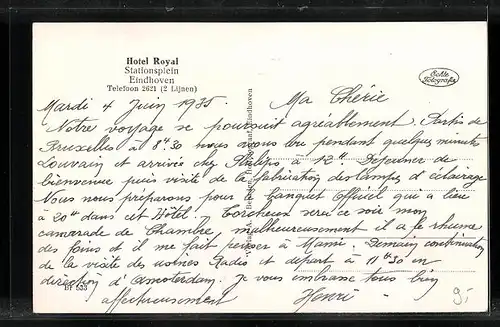 Hotel Royal
Stationsplein
Eindhoven
Telefoon 2621 (2 Lijnen)
Echte
Fotografie
Mardi 4 Juin 1935
Ma Chérie
Notre voyage se poursuit agréablement. Partis de
Bruxelles à 8h30 nous avons vu pendant quelques minutes
Louvain et arrivés chez Philips à 12h. Déjeuner de
bienvenue puis visite de la fabrication des lampes d'éclairage
Nous nous préparons pour le banquet Officiel qui a lieu
à 20h dans cet Hôtel. Torcheux sera ce soir mon
camarade de Chambre, malheureusement il a le rhume
des foins et il me fait penser à Mamie. Demain continuation
de la visite des usines Radio et départ à 11h30 en
direction d'Amsterdam. Je vous embrasse tous bien
affectueusement Henri
BY 533
9.-